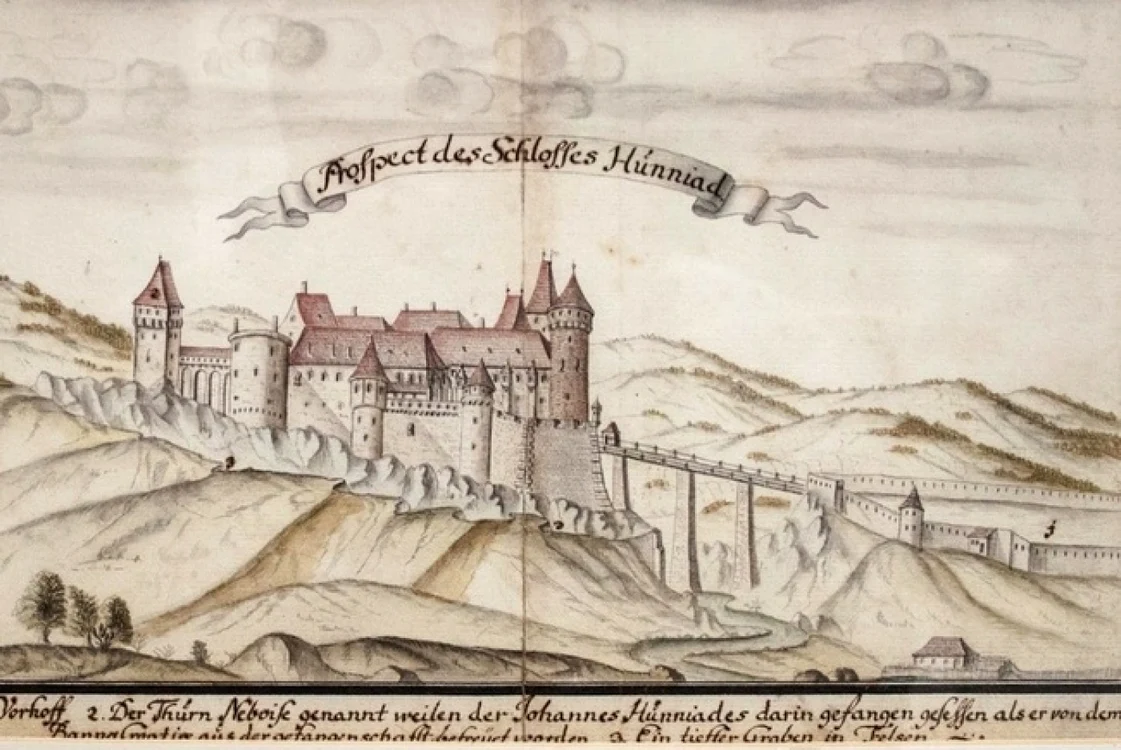 Prospect des Schlosses Hünniad
Vorhoff 2. Der Thürn Neboise genannt weilen der Johannes Hünniades darin gefangen gesessen als er von dem
aus der gefangenschafft worden 3. Ein tieffer Graben in Felsen